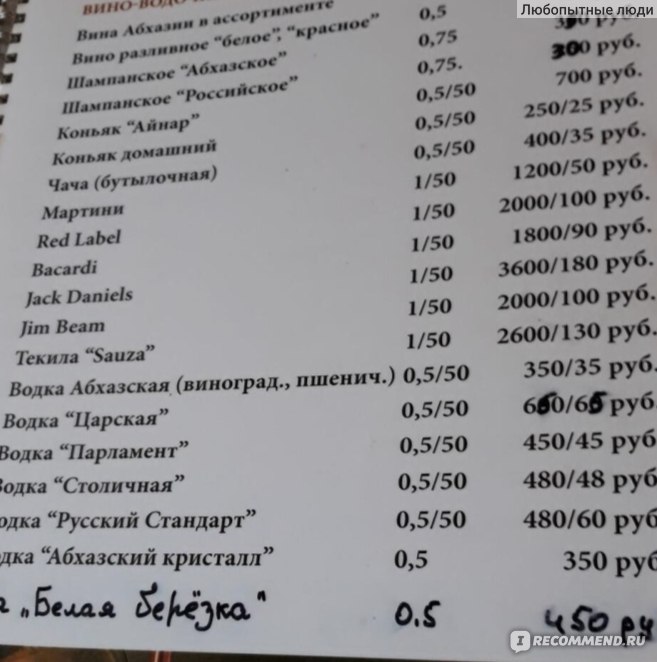 Любопытные люди
ВИНО-ВОДО
Вина Абхазии в ассортименте
Вино разливное "белое", "красное" 0,5
Шампанское "Абхазское" 0,75 руб.
Шампанское "Российское" 0,75. 300 руб.
Коньяк "Айнар" 0,5/50 700 руб.
Коньяк домашний 0,5/50 250/25 руб.
Чача (бутылочная) 0,5/50 400/35 руб.
Мартини 1/50 1200/50 руб.
Red Label 1/50 2000/100 руб.
Bacardi 1/50 1800/90 руб.
Jack Daniels 1/50 3600/180 руб.
Jim Beam 1/50 2000/100 руб.
Текила "Sauza" 1/50 2600/130 руб.
Водка Абхазская (виноград., пшенич.) 0,5/50 350/35 руб.
Водка "Царская" 0,5/50 650/65 руб.
Водка "Парламент" 0,5/50 450/45 руб
Водка "Столичная" 0,5/50 480/48 руб
одка "Русский Стандарт" 0,5/50 480/60 руб
дка "Абхазский кристалл" 0,5 350 руб
а „Белая берёзка" 0.5 450 ру
IRECOMMEND.RU